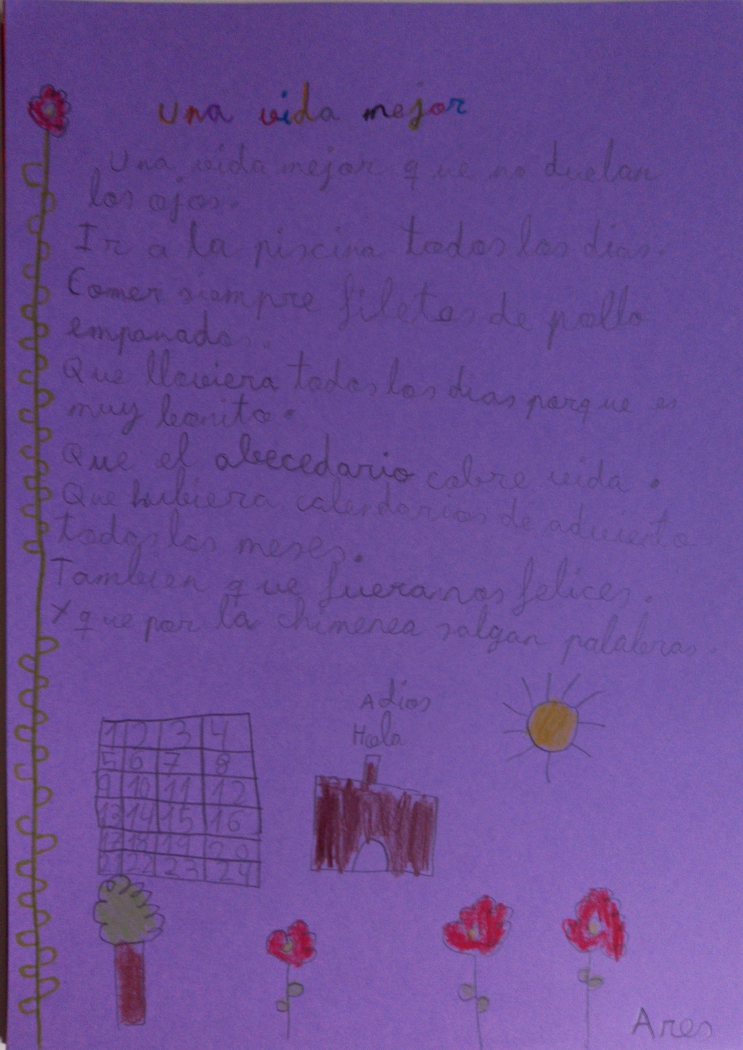 una vida mejor
Una vida mejor que no duelan
los ojos.
Ir a la piscina todos los dias.
Comer siempre filetes de pollo
empanados.
Que lloviera todos los dias porque es
muy bonito.
Que el abecedario cobre vida.
Que hubiera calendarios de adviento
todos los meses.
Tambien que fueramos felices.
Y que por la chimenea salgan palabras.
Adios
Hola
1 2 3 4
5 6 7 8
9 10 11 12
13 14 15 16
17 18 19 20
21 22 23 24
Ares